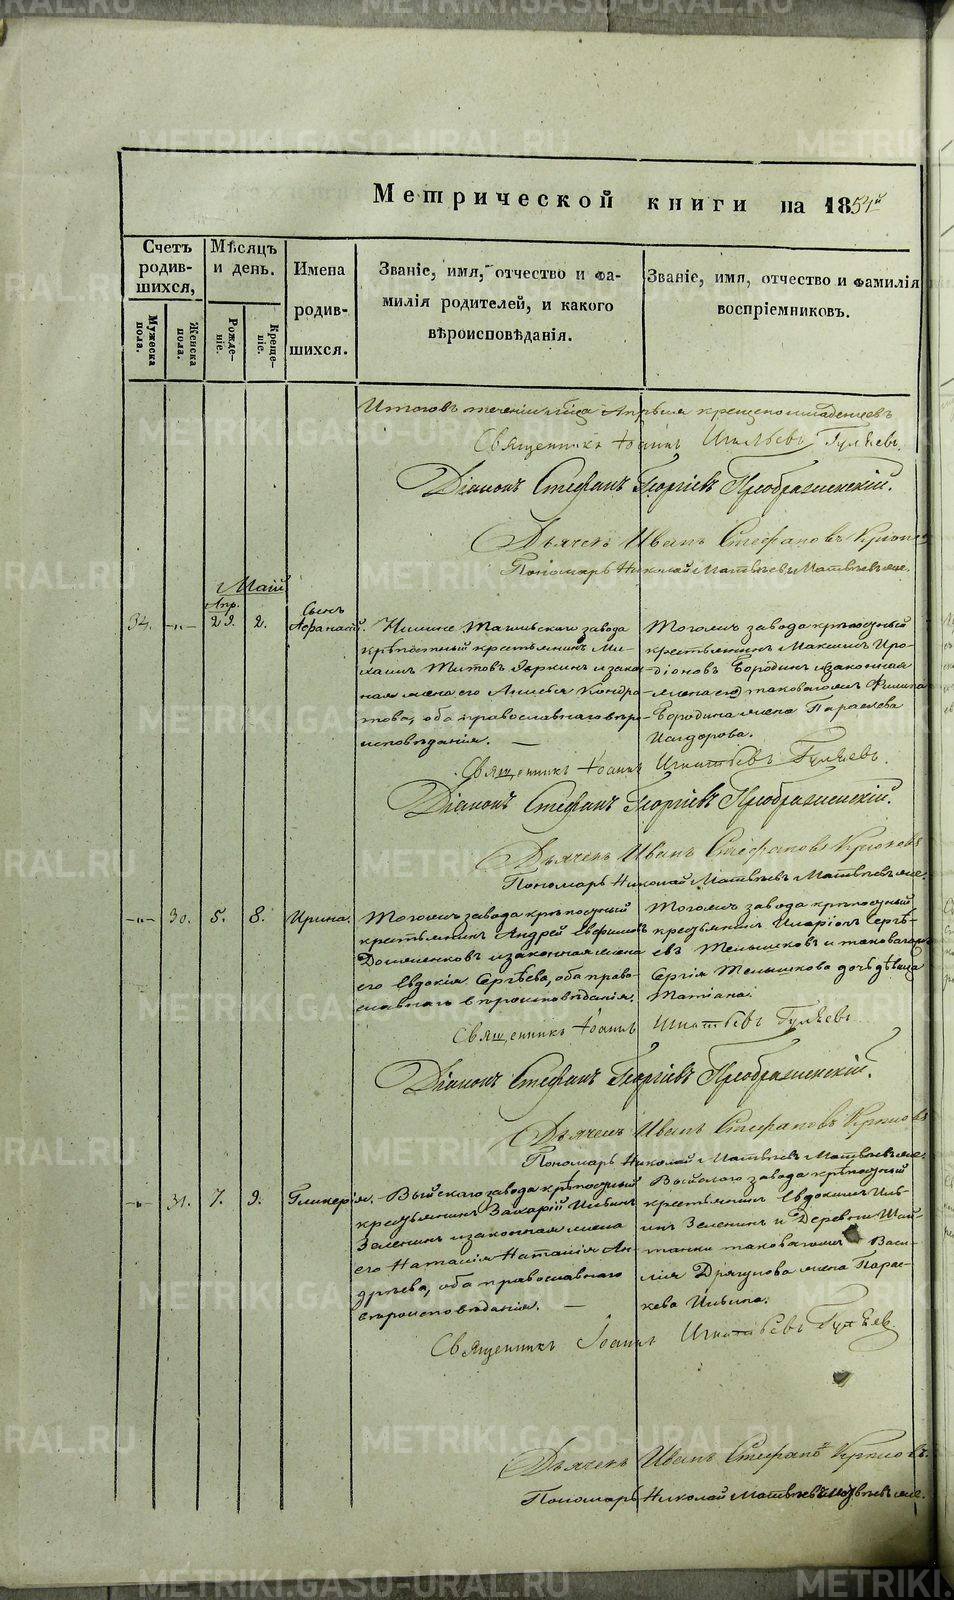 METRIKI.GASO-URAL.RU
Метрической книги на 1854й
Счетъ родив-шихся,
Мужеска пола.
Женска пола.
Мѣсяцъ и день.
Рожде-ніе.
Креще-ніе.
Имена родив-шихся.
Званіе, имя, отчество и фа-
милія родителей, и какого
вѣроисповѣданія.
Званіе, имя, отчество и фамилія
воспріемниковъ.
Апрѣля крещено младенцевъ
Священникъ Іоаннъ Игнатьевъ Гуляевъ.
Діаконъ Стефанъ Георгіевъ Преображенскій.
Дьячекъ Иванъ Стефановъ
Пономарь Николай Матвѣевъ
Маій
34. -"- Апр. 29. 2. Сынъ Афанасій.
Нижне Тагильскаго завода
крѣпостный крестьянинъ Ми-
хаилъ Титовъ и закон-
ная жена его Кондра-
това, оба православнаго вѣро-
исповѣданія.
Тогожъ завода крѣпостный
крестьянинъ Максимъ Иро-
діоновъ Бородинъ и законная
жена его таковагожъ Филипа
Бородина жена Параскева
Исидорова.
Священникъ Іоаннъ Игнатьевъ Гуляевъ.
Діаконъ Стефанъ Георгіевъ Преображенскій.
Дьячекъ Иванъ Стефановъ
Пономарь Николай Матвѣевъ
-"- 30. 5. 8. Ирина.
Тогожъ завода крѣпостный
крестьянинъ Андрей Евфимовъ
и законная жена
его Евдокія Сергѣева, оба право-
славнаго вѣроисповѣданія.
Тогожъ завода крѣпостный
крестьянинъ Иларіонъ Сергѣ-
евъ и таковагожъ
Сергія дочь дѣвица
Татіана.
Священникъ Іоаннъ Игнатьевъ Гуляевъ
Діаконъ Стефанъ Георгіевъ Преображенскій.
Дьячекъ Иванъ Стефановъ
Пономарь Николай Матвѣевъ
-"- 31. 7. 9. Гликерія.
Выйскаго завода крѣпостный
крестьянинъ Захарій Ильинъ
Зеленинъ и законная жена
его Наталія Наталія Ан-
дреева, оба православнаго
вѣроисповѣданія.
Выйскаго завода крѣпостный
крестьянинъ Евдокимъ Иль-
инъ Зеленинъ и Деревни Шай-
танки таковагожъ Васи-
лія Дрягунова жена Парас-
кева Ильина.
Священникъ Іоаннъ Игнатьевъ Гуляевъ.
Дьячекъ Иванъ Стефановъ
Пономарь Николай Матвѣевъ